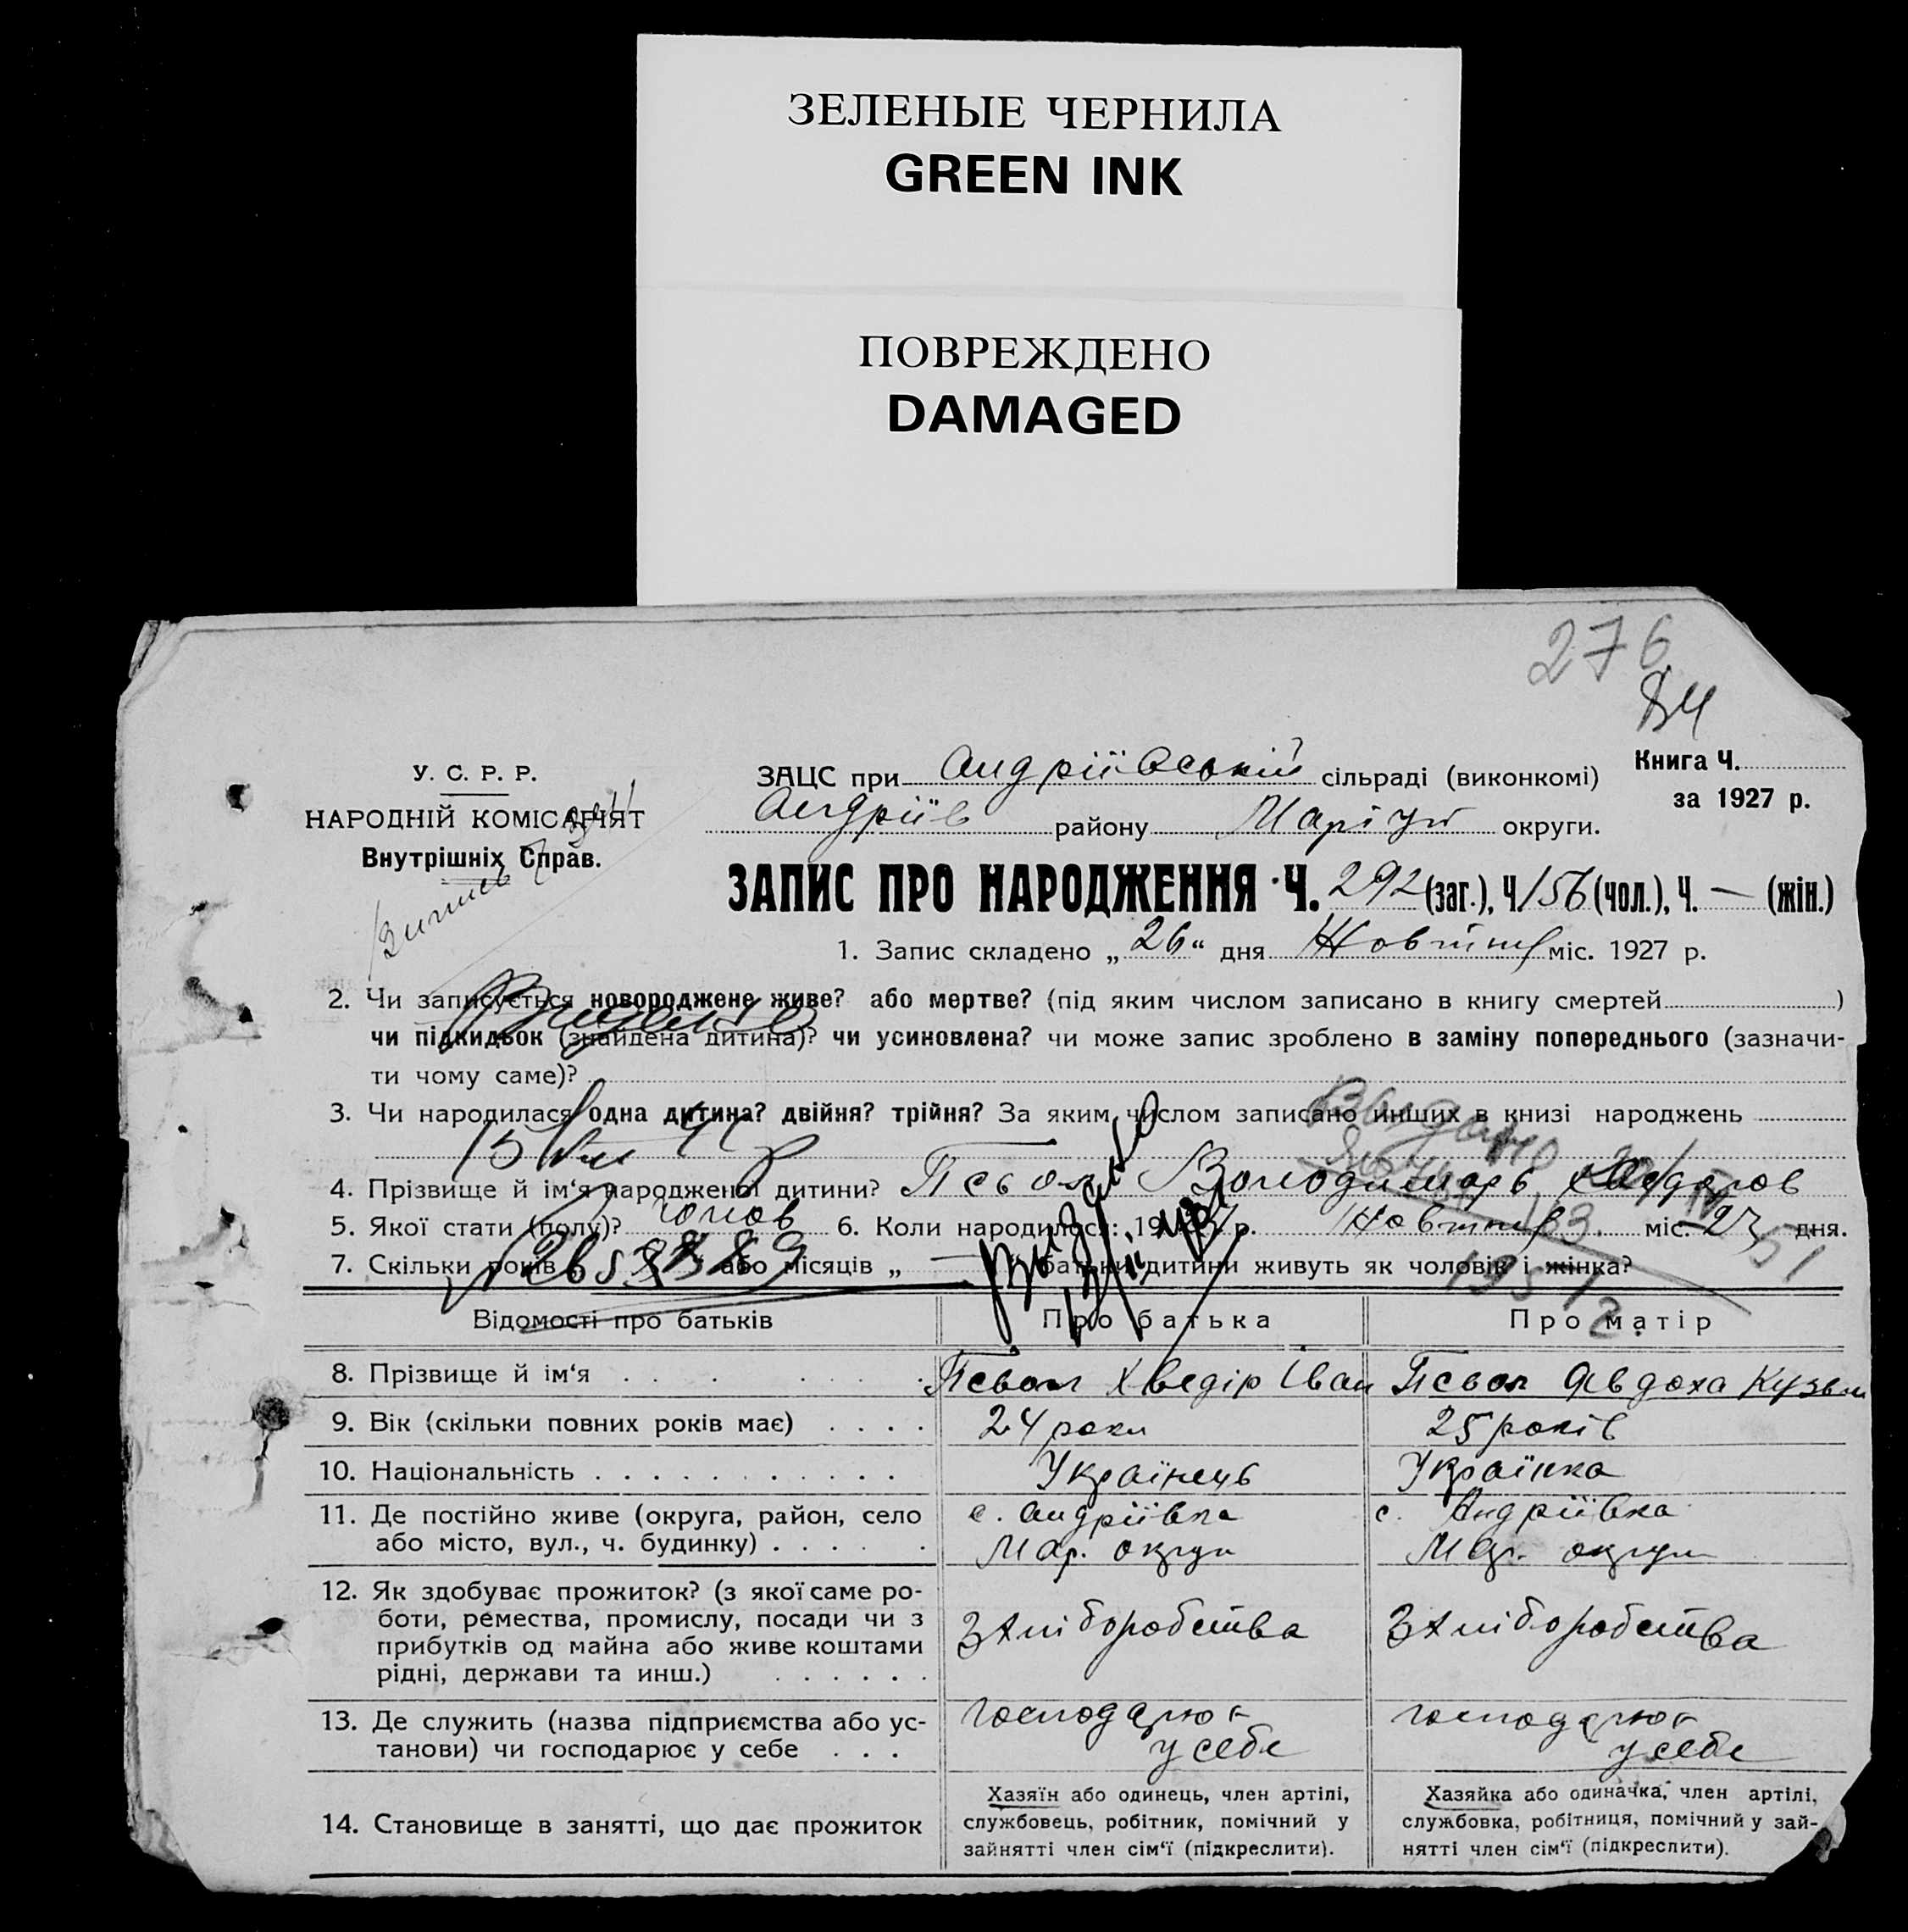 ЗЕЛЕНЫЕ ЧЕРНИЛА
GREEN INK
ПОВРЕЖДЕНО
DAMAGED
276
У. С. Р. Р.
НАРОДНІЙ КОМІСАРІЯТ
Внутрішніх Справ.
ЗАЦС при Андріївській сільраді (виконкомі)
Андріїв району Маріуп округи.
Книга Ч.
за 1927 р.
ЗАПИС ПРО НАРОДЖЕННЯ Ч. 292 (заг.), Ч 156 (чол.), Ч. — (жін.)
1. Запис складено „26“ дня Жовтня міс. 1927 р.
2. Чи записується новороджене живе? або мертве? (під яким числом записано в книгу смертей)
чи підкидьок (знайдена дитина)? чи усиновлена? чи може запис зроблено в заміну попереднього (зазначи-
ти чому саме)?
3. Чи народилася одна дитина? двійня? трійня? За яким числом записано инших в книзі народжень
4. Прізвище й ім‘я народженої дитини? Псьол Володимарь Хведоров
5. Якої стати (полу)? чолов 6. Коли народилося: 1927 р. Жовтня міс. 23 дня.
7. Скільки років або місяців „ — батьки дитини живуть як чоловік і жінка?
Видано
Выдано
Відомості про батьків
Про батька
Про матір
8. Прізвище й ім‘я
Псьол Хведір Іван
Псьол Явдоха Кузьм
9. Вік (скільки повних років має)
24 роки
25 років
10. Національність
Українець
Українка
11. Де постійно живе (округа, район, село
або місто, вул., ч. будинку)
с. Андріївка
Мар. округи
с. Андріївка
Мар. округи
12. Як здобуває прожиток? (з якої саме ро-
боти, ремества, промислу, посади чи з
прибутків од майна або живе коштами
рідні, держави та инш.)
З хліборобства
З хліборобства
13. Де служить (назва підприємства або ус-
танови) чи господарює у себе
господарює
у себе
господарює
у себе
14. Становище в занятті, що дає прожиток
Хазяїн або одинець, член артілі,
службовець, робітник, помічний у
зайнятті член сім‘ї (підкреслити).
Хазяйка або одиначка, член артілі,
службовка, робітниця, помічний у зай-
нятті член сім‘ї (підкреслити).